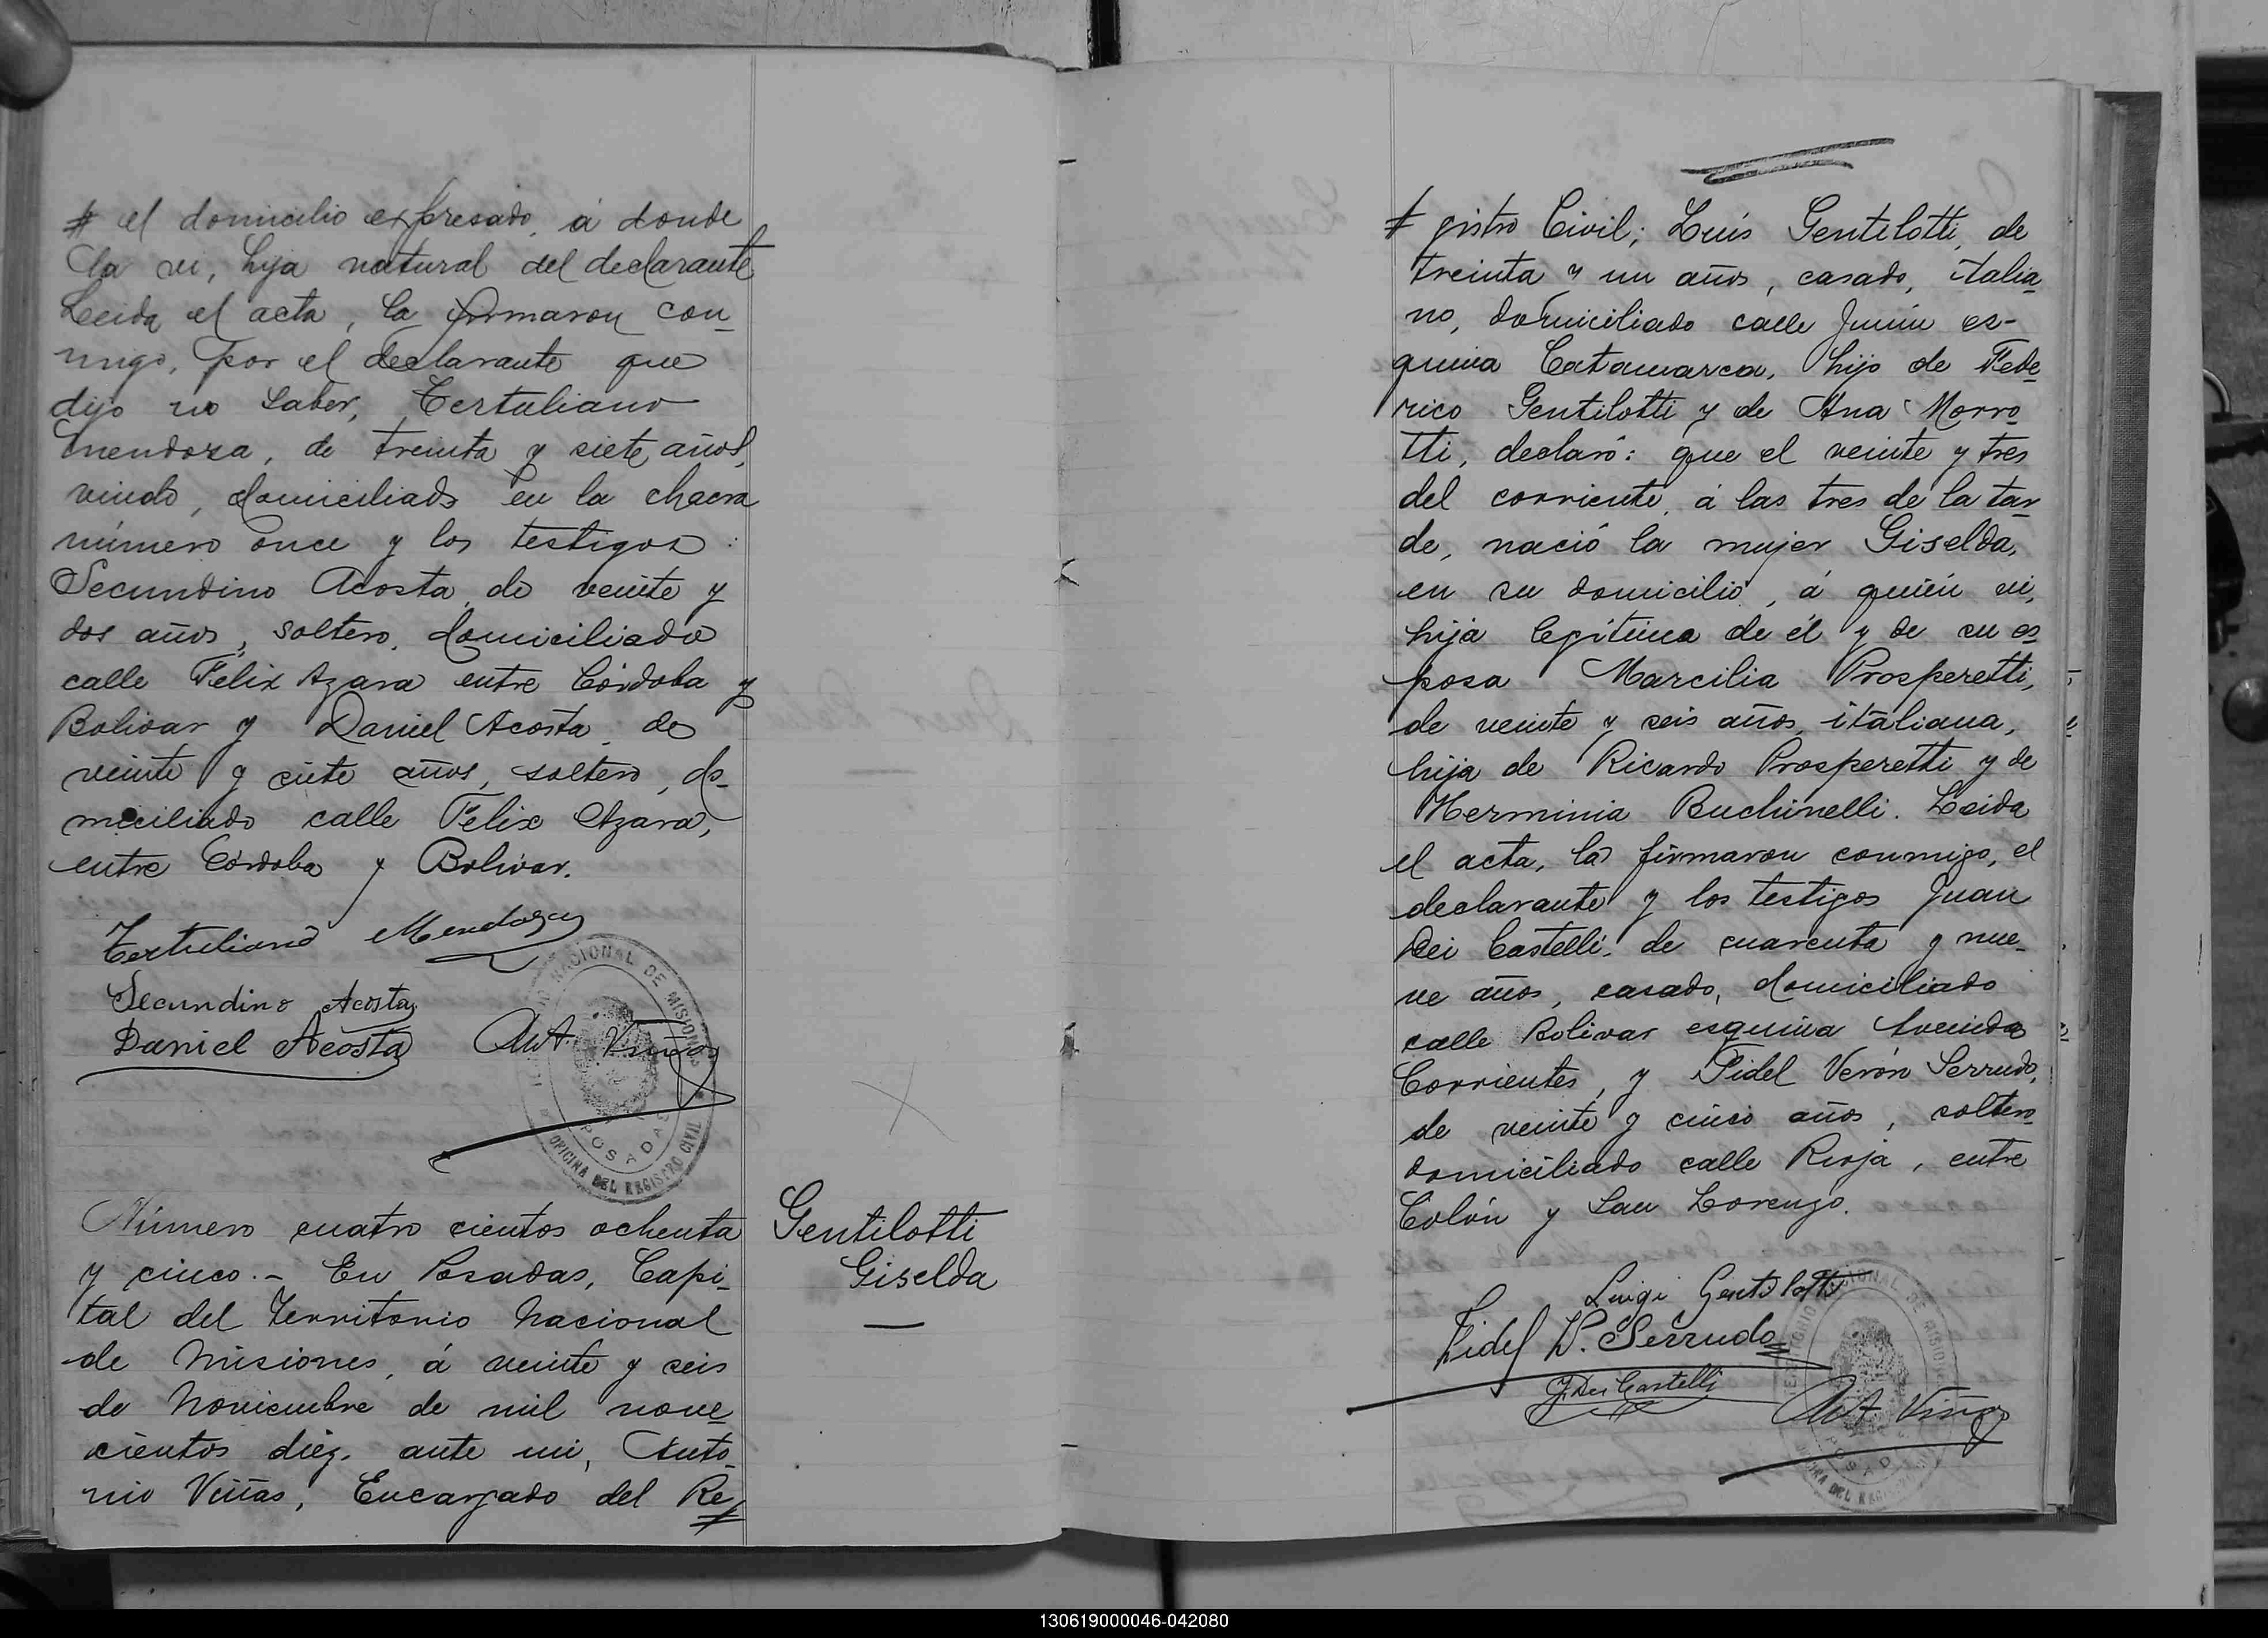 # el domicilio expresado, á donde
la vi, hija natural del declarante
Leida el acta, la firmaron con_
migo, por el declarante que
dijo no saber, Tertuliano
Mendoza, de treinta y siete años,
viudo, domiciliado en la chacra
número once y los testigos:
Secundino Acosta, de veinte y
dos años, soltero, domiciliado
calle Felix Azara entre Córdoba y
Bolivar y Daniel Acosta, de
veinte y siete años, soltero, do_
miciliado calle Felix Azara,
entre Córdoba y Bolivar.
Tertuliano Mendoza
Secundino Acosta
Daniel Acosta Ant Viñas
NACIONAL DE MISIONES
POSADAS
OFICINA DEL REGISTRO CIVIL
Número cuatro cientos ochenta
y cinco.- En Posadas, Capi_
tal del Territorio Nacional
de Misiones, á veinte y seis
de Noviembre de mil nove_
cientos diéz, ante mi, Anto_
nio Viñas, Encargado del Re#
Gentilotti
Giselda
# gistro Civil; Luis Gentilotti, de
treinta y un años, casado, italia_
no, domiciliado calle Junin es-
quina Catamarca, hijo de Fede_
rico Gentilotti y de Ana Morro_
tti, declaró: que el veinte y tres
del corriente, á las tres de la tar_
de, nació la mujer Giselda,
en su domicilio, á quién vi,
hija legítima de él y de su es_
posa Marcilia Prosperetti,
de veinte y seis años, italiana,
hija de Ricardo Prosperetti y de
Herminia Buchinelli. Leida
el acta, la firmaron conmigo, el
declarante y los testigos Juan
Dei Castelli, de cuarenta y nue_
ve años, casado, domiciliado
calle Bolivar esquina Avenida
Corrientes, y Fidel Verón Serrudo,
de veinte y cinco años, soltero
domiciliado calle Rioja, entre
Colón y San Lorenzo.
Luigi Gentilotti
Fidel V. Serrudo
J. Dei Castelli
Ant Viñas
TERRITORIO NACIONAL DE MISIONES
POSADAS
OFICINA DEL REGISTRO
130619000046-042080